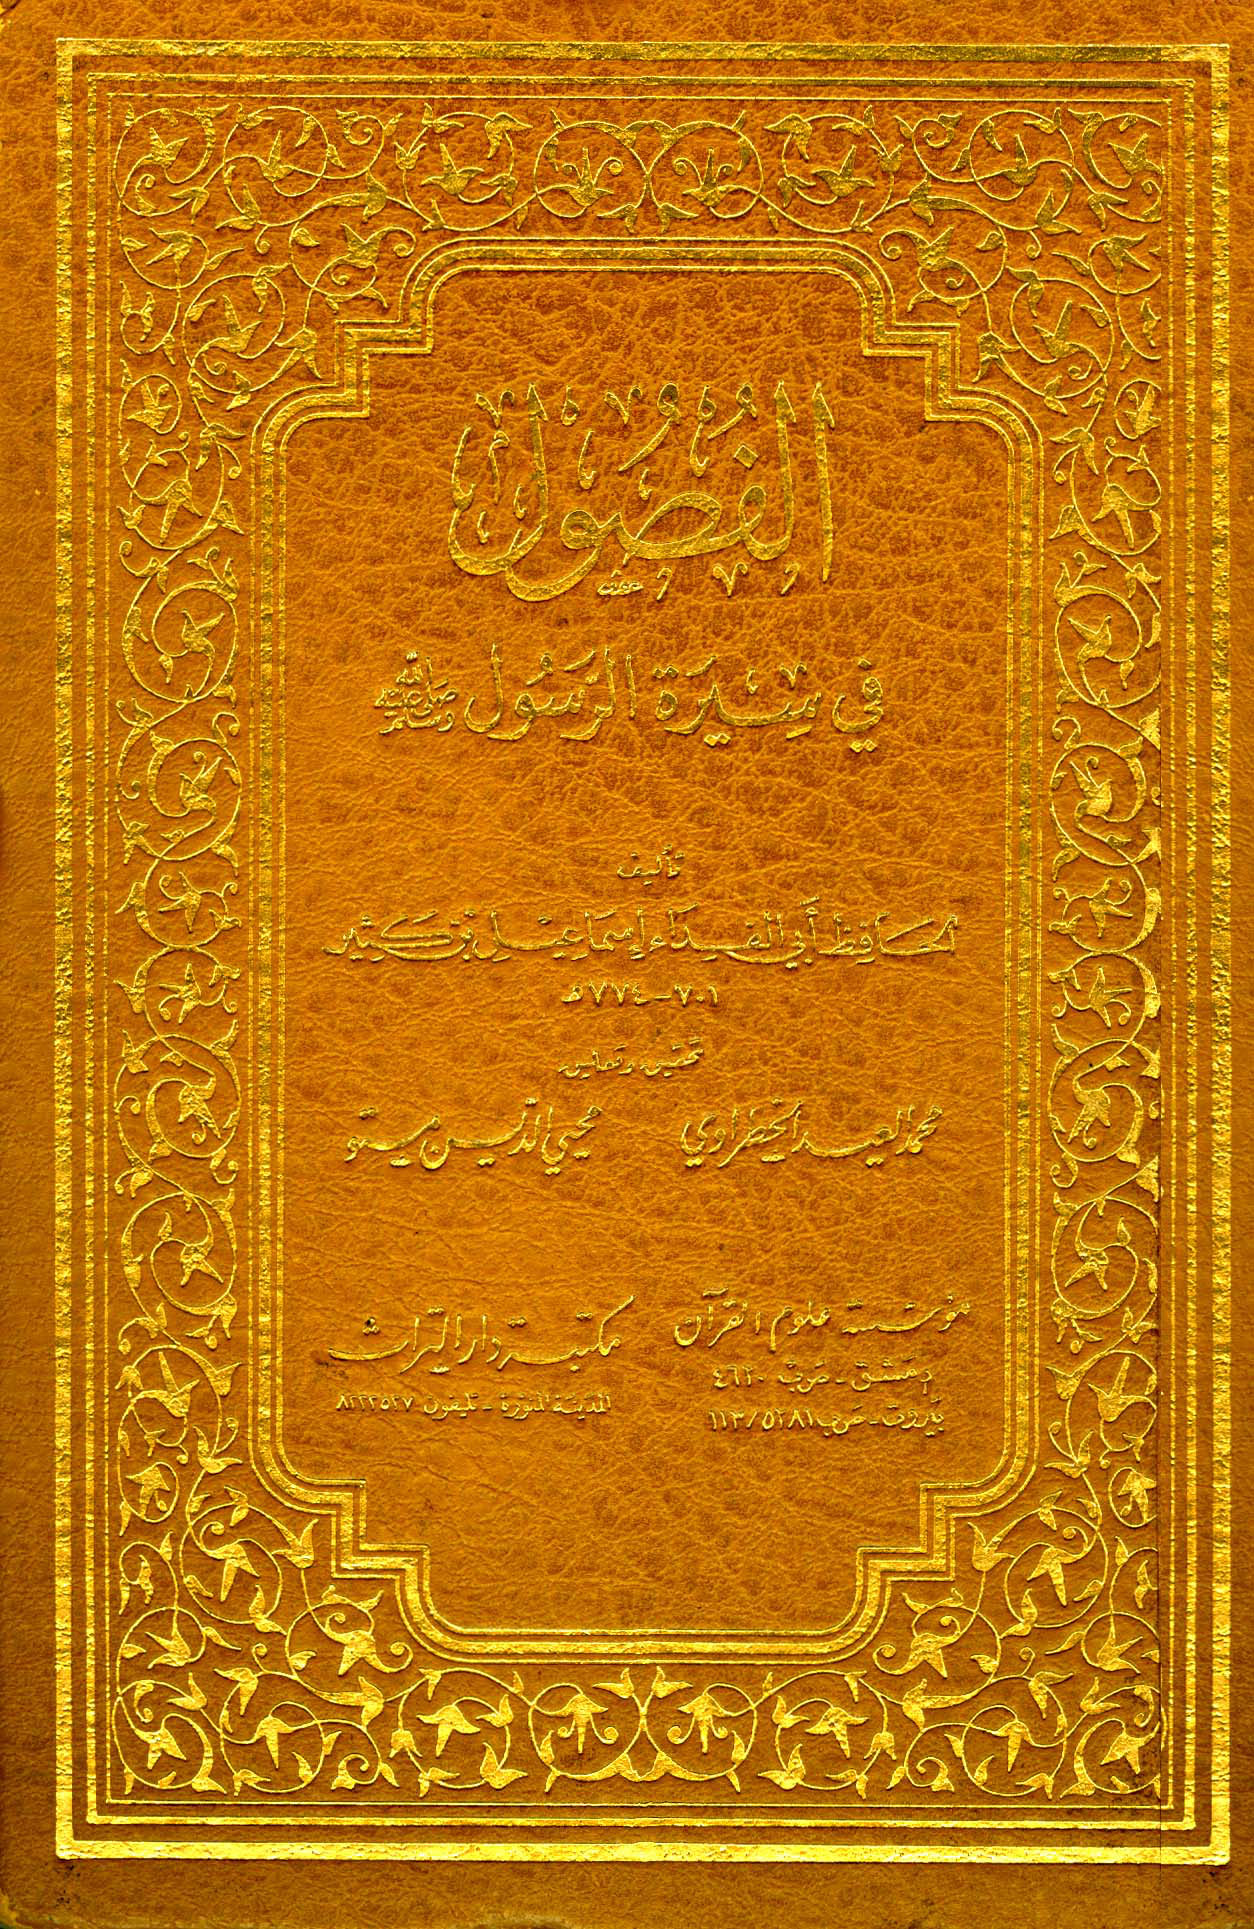 الفُصُول
في سِيْرَة الرَّسُول صلى الله عليه وسلم
تأليف
الحَافِظ أبي الفِدَاء إِسْمَاعِيْل بن كَثِير
٧٠١ - ٧٧٤ هـ
تحقيق وتعليق
محمد العيد الخطراوي محيي الدين مستو
مؤسسة علوم القرآن
دمشق - ص ب ٤٦٢٠
بيروت - ص ب ١١٣/٥٢٨١
مكتبة دار التراث
المدينة المنورة - تليفون ٨٢٢٣٥٢٧